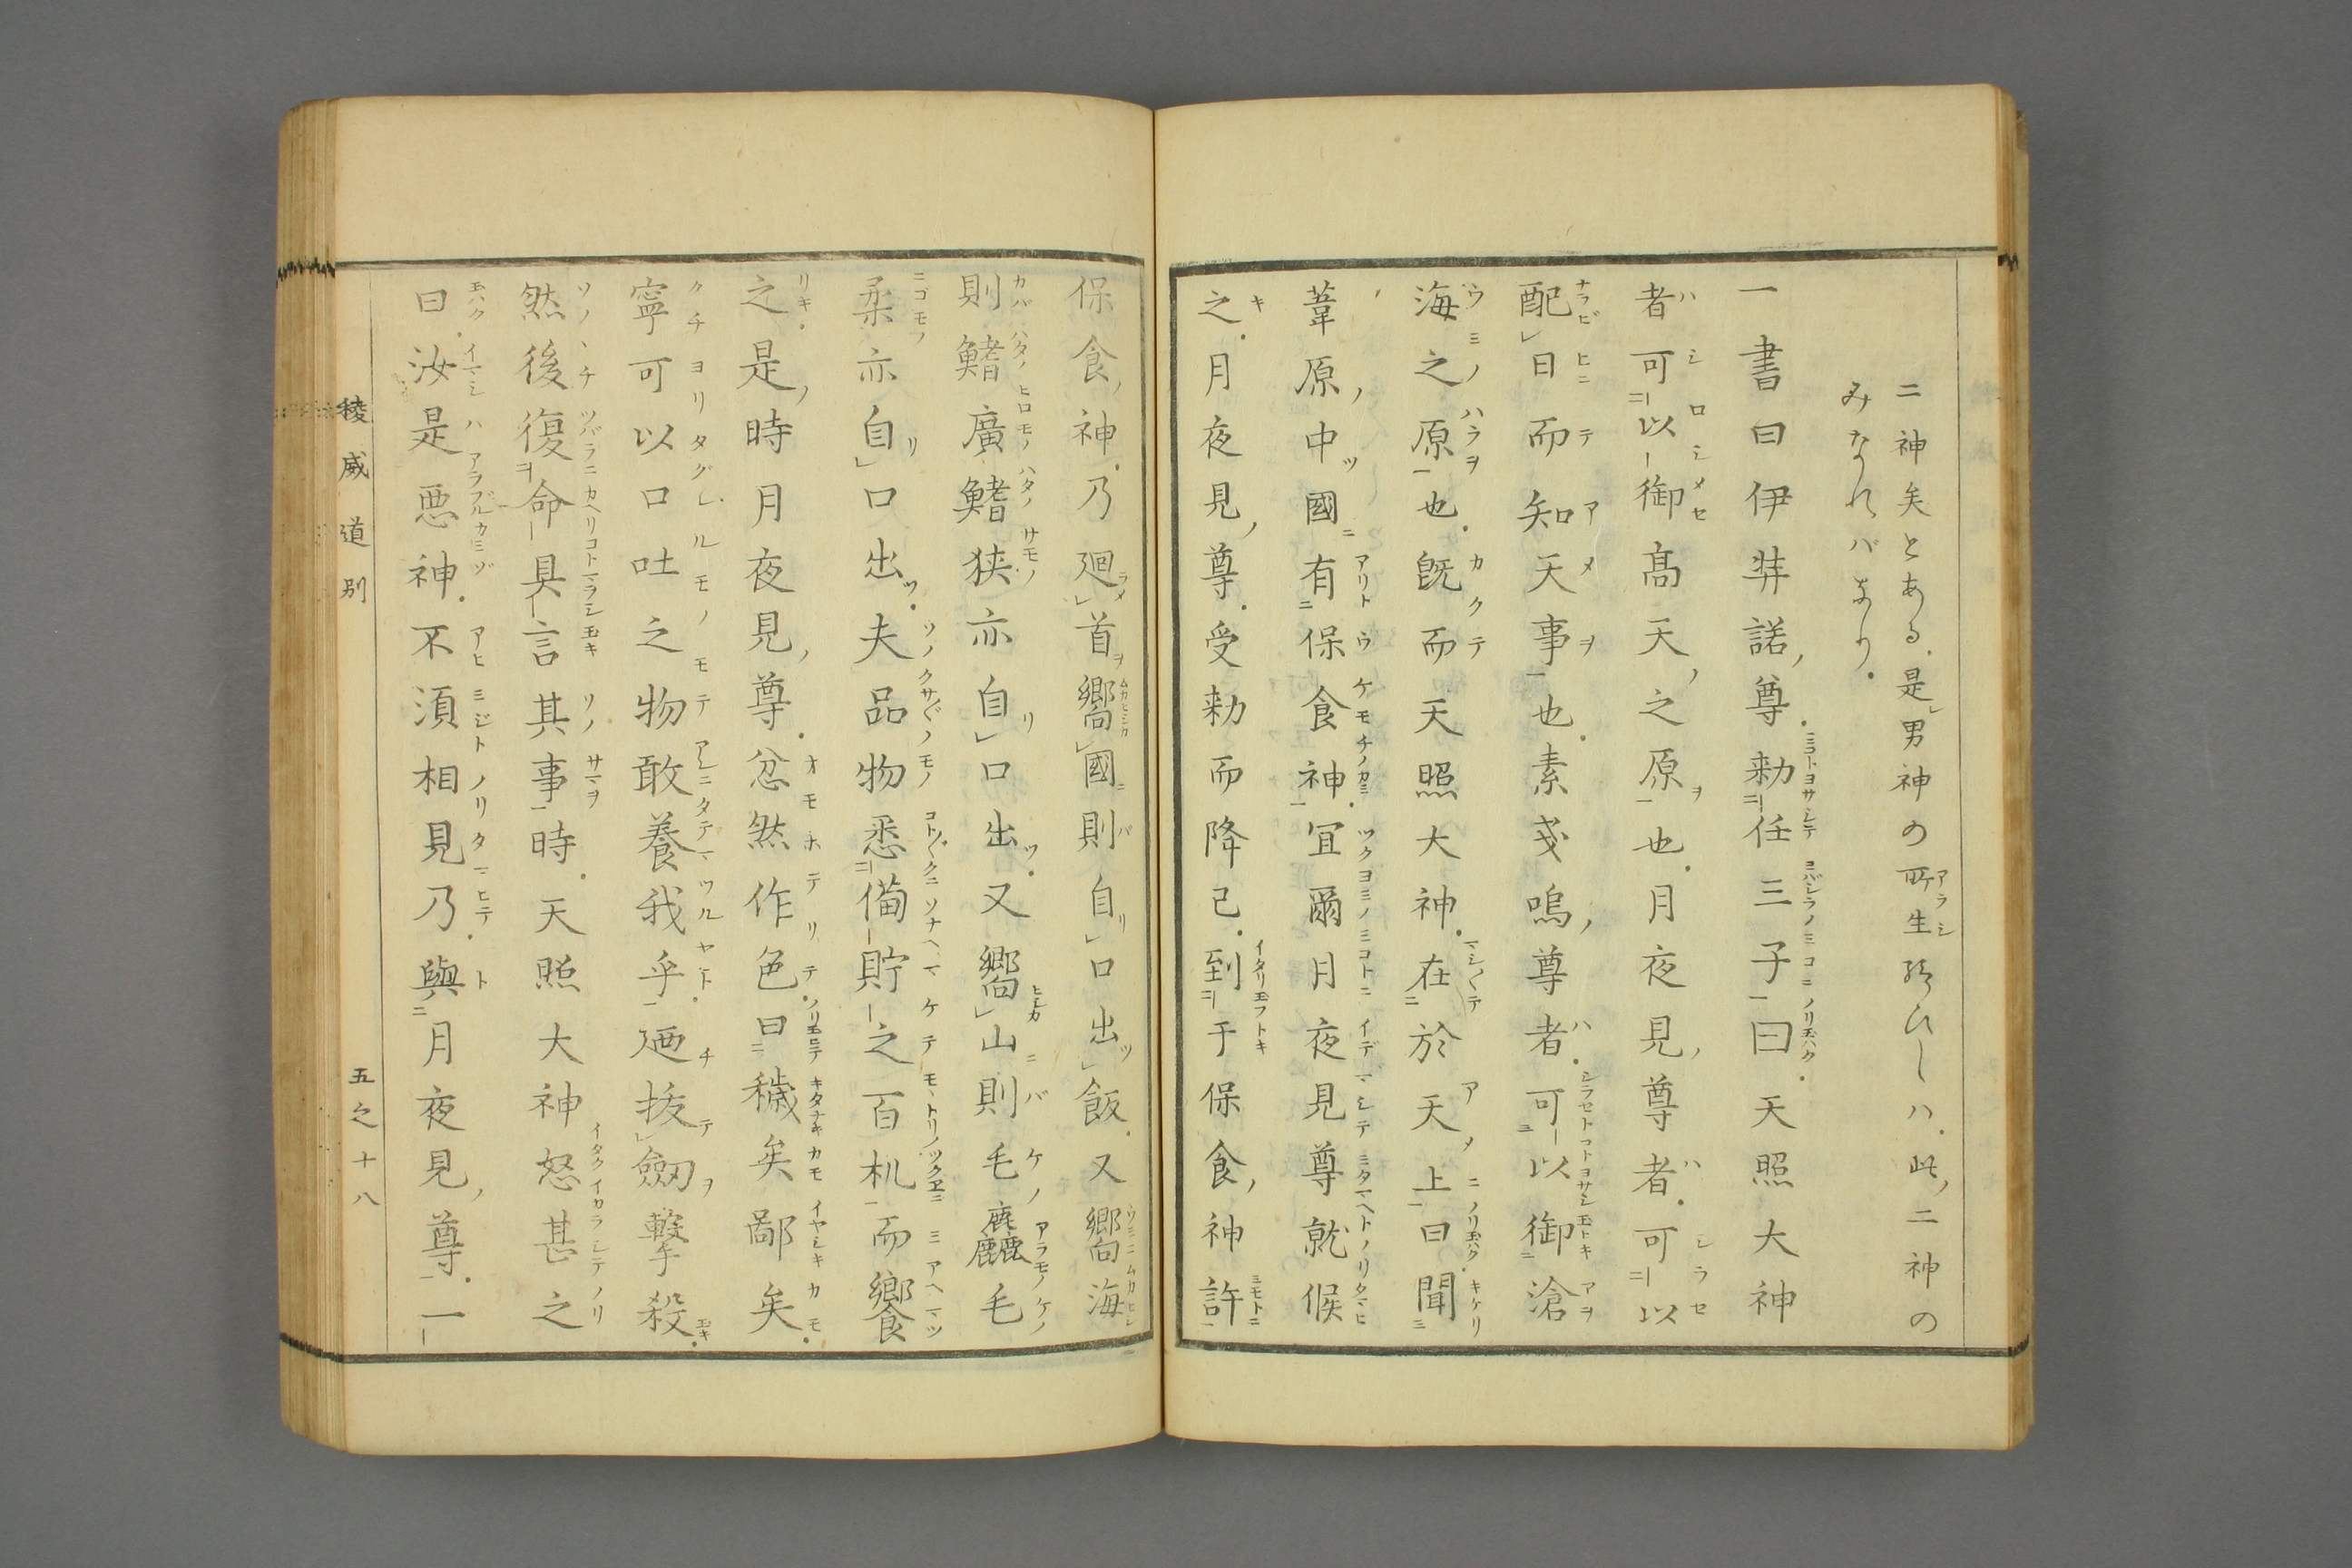 二神矣とある是男神の所生給ひしハ此二神の
みなれバなり
一書曰伊弉諾尊勅任三子曰天照大神
者可以御髙天之原也月夜見尊者可以
配日而知天事也素戔嗚尊者可以御滄
海之原也既而天照大神在於天上曰聞
葦原中國有保食神宜爾月夜見尊就候
之月夜見尊受勅而降已到于保食神許
保食神乃廻首嚮國則自口出飯又嚮海
則鰭廣鰭狭亦自口出又嚮山則毛麤毛
柔亦自口出夫品物悉備貯之百机而饗
之是時月夜見尊忿然作色曰穢矣鄙矣
寧可以口吐之物敢養我乎廼抜劔撃殺
然後復命具言其事時天照大神怒甚之
曰汝是悪神不須相見乃與月夜見尊一
稜威道別　五之十八